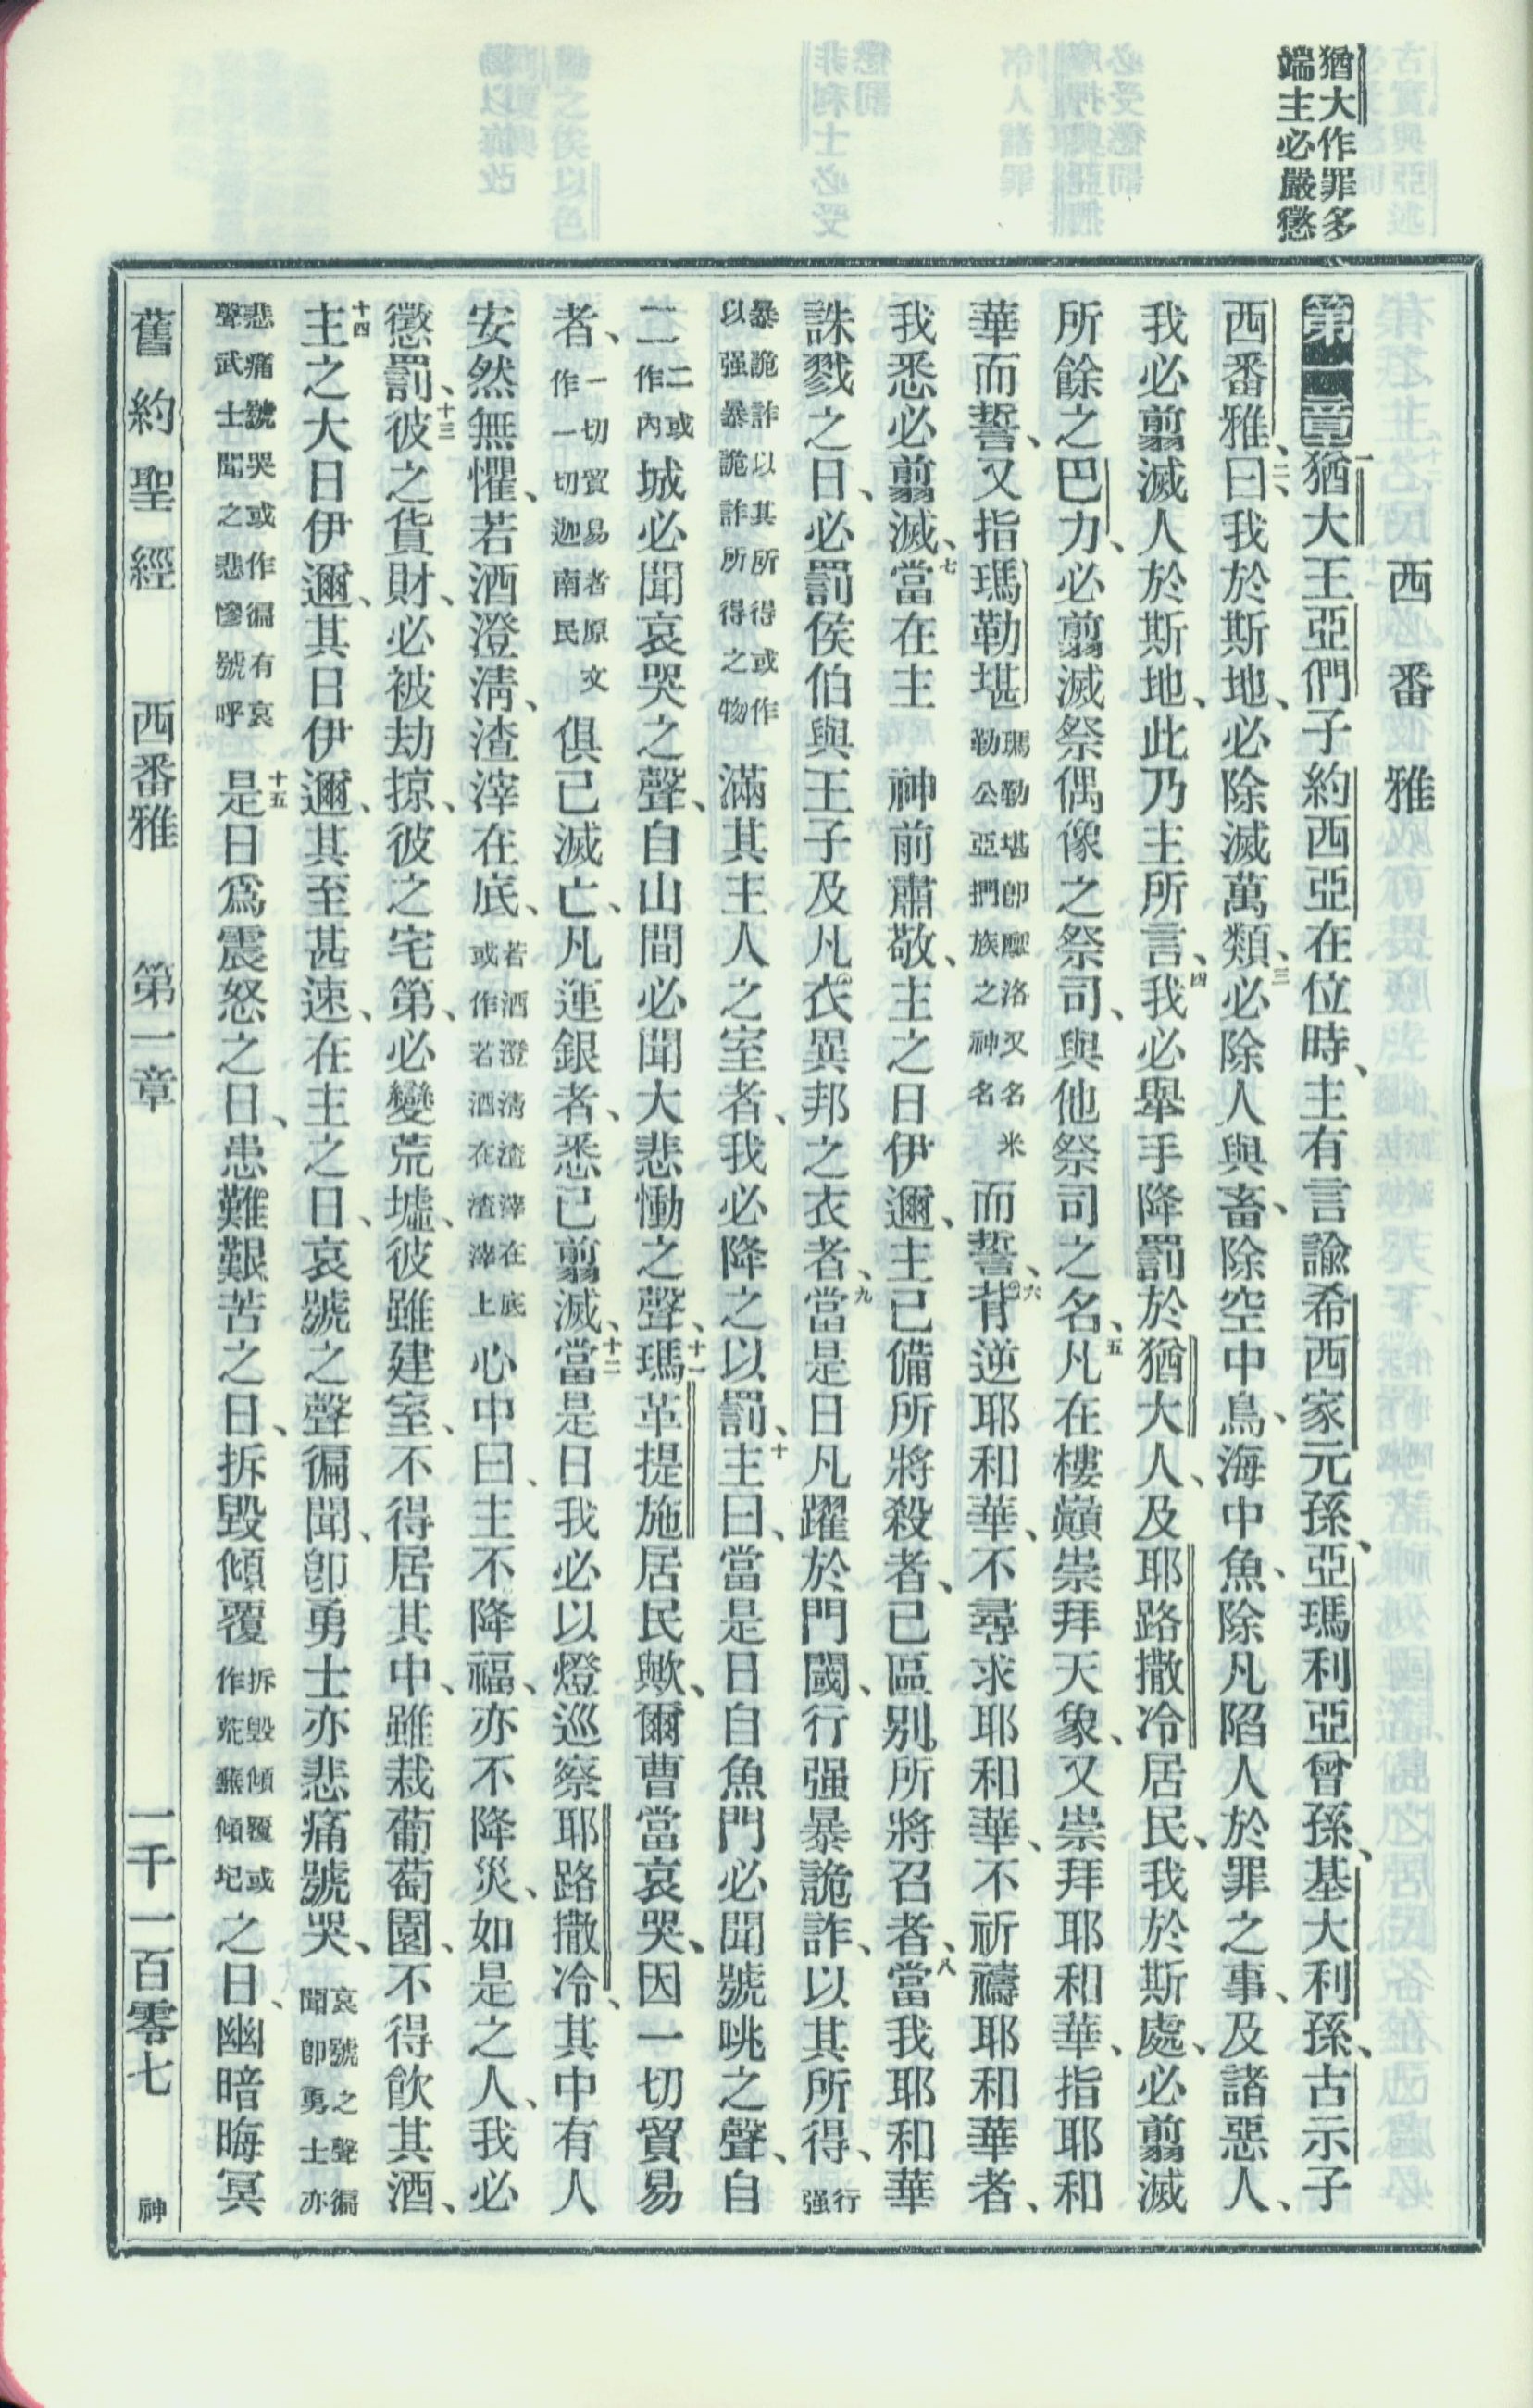 猶大作罪多
端主必嚴懲
西番雅
第一章一猶大王亞們子約西亞在位時、主有言諭希西家元孫、亞瑪利亞曾孫、基大利孫、古示子
西番雅、曰、二我於斯地、必除滅萬類、三必除人與畜、除空中鳥、海中魚、除凡陷人於罪之事、及諸惡人、
我必翦滅人於斯地、此乃主所言、四我必舉手降罰於猶大人、及耶路撒冷居民、我於斯處、必翦滅
所餘之巴力、必翦滅祭偶像之祭司、與他祭司之名、五凡在樓巔崇拜天象、又崇拜耶和華、指耶和
華而誓、又指瑪勒堪瑪勒堪卽摩洛又名米勒公亞捫族之神名而誓、六背逆耶和華、不尋求耶和華、不祈禱耶和華者、
我悉必翦滅、七當在主　神前肅敬、主之日伊邇、主已備所將殺者、已區别所將召者、八當我耶和華
誅戮之日、必罰侯伯與王子及凡衣異邦之衣者、九當是日凡躍於門閾、行强暴詭詐、以其所得、行强
暴詭詐以其所得或作以强暴詭詐所得之物滿其主人之室者、我必降之以罰、十主曰、當是日自魚門必聞號咷之聲、自
二二或作內城必聞哀哭之聲、自山間必聞大悲慟之聲、十一瑪革提施居民歟、爾曹當哀哭、因一切貿易
者、一切貿易者原文作一切迦南民俱已滅亡、凡運銀者、悉已翦滅、十二當是日我必以燈巡察耶路撒冷、其中有人
安然無懼、若酒澄淸、渣滓在底、若酒澄淸渣滓在底或作若酒在渣滓上心中曰、主不降福、亦不降災、如是之人、我必
懲罰、十三彼之貨財、必被劫掠、彼之宅第、必變荒墟、彼雖建室、不得居其中、雖栽葡萄園、不得飮其酒、
十四主之大日伊邇、其日伊邇、其至甚速、在主之日、哀號之聲徧聞、卽勇士亦悲痛號哭、哀號之聲徧聞卽勇士亦
悲痛號哭或作徧有哀聲武士聞之悲慘號呼十五是日爲震怒之日、患難艱苦之日、拆毀傾覆拆毀傾覆或作荒蕪傾圮之日、幽暗晦冥
舊約聖經　西番雅　第一章　一千一百零七　神